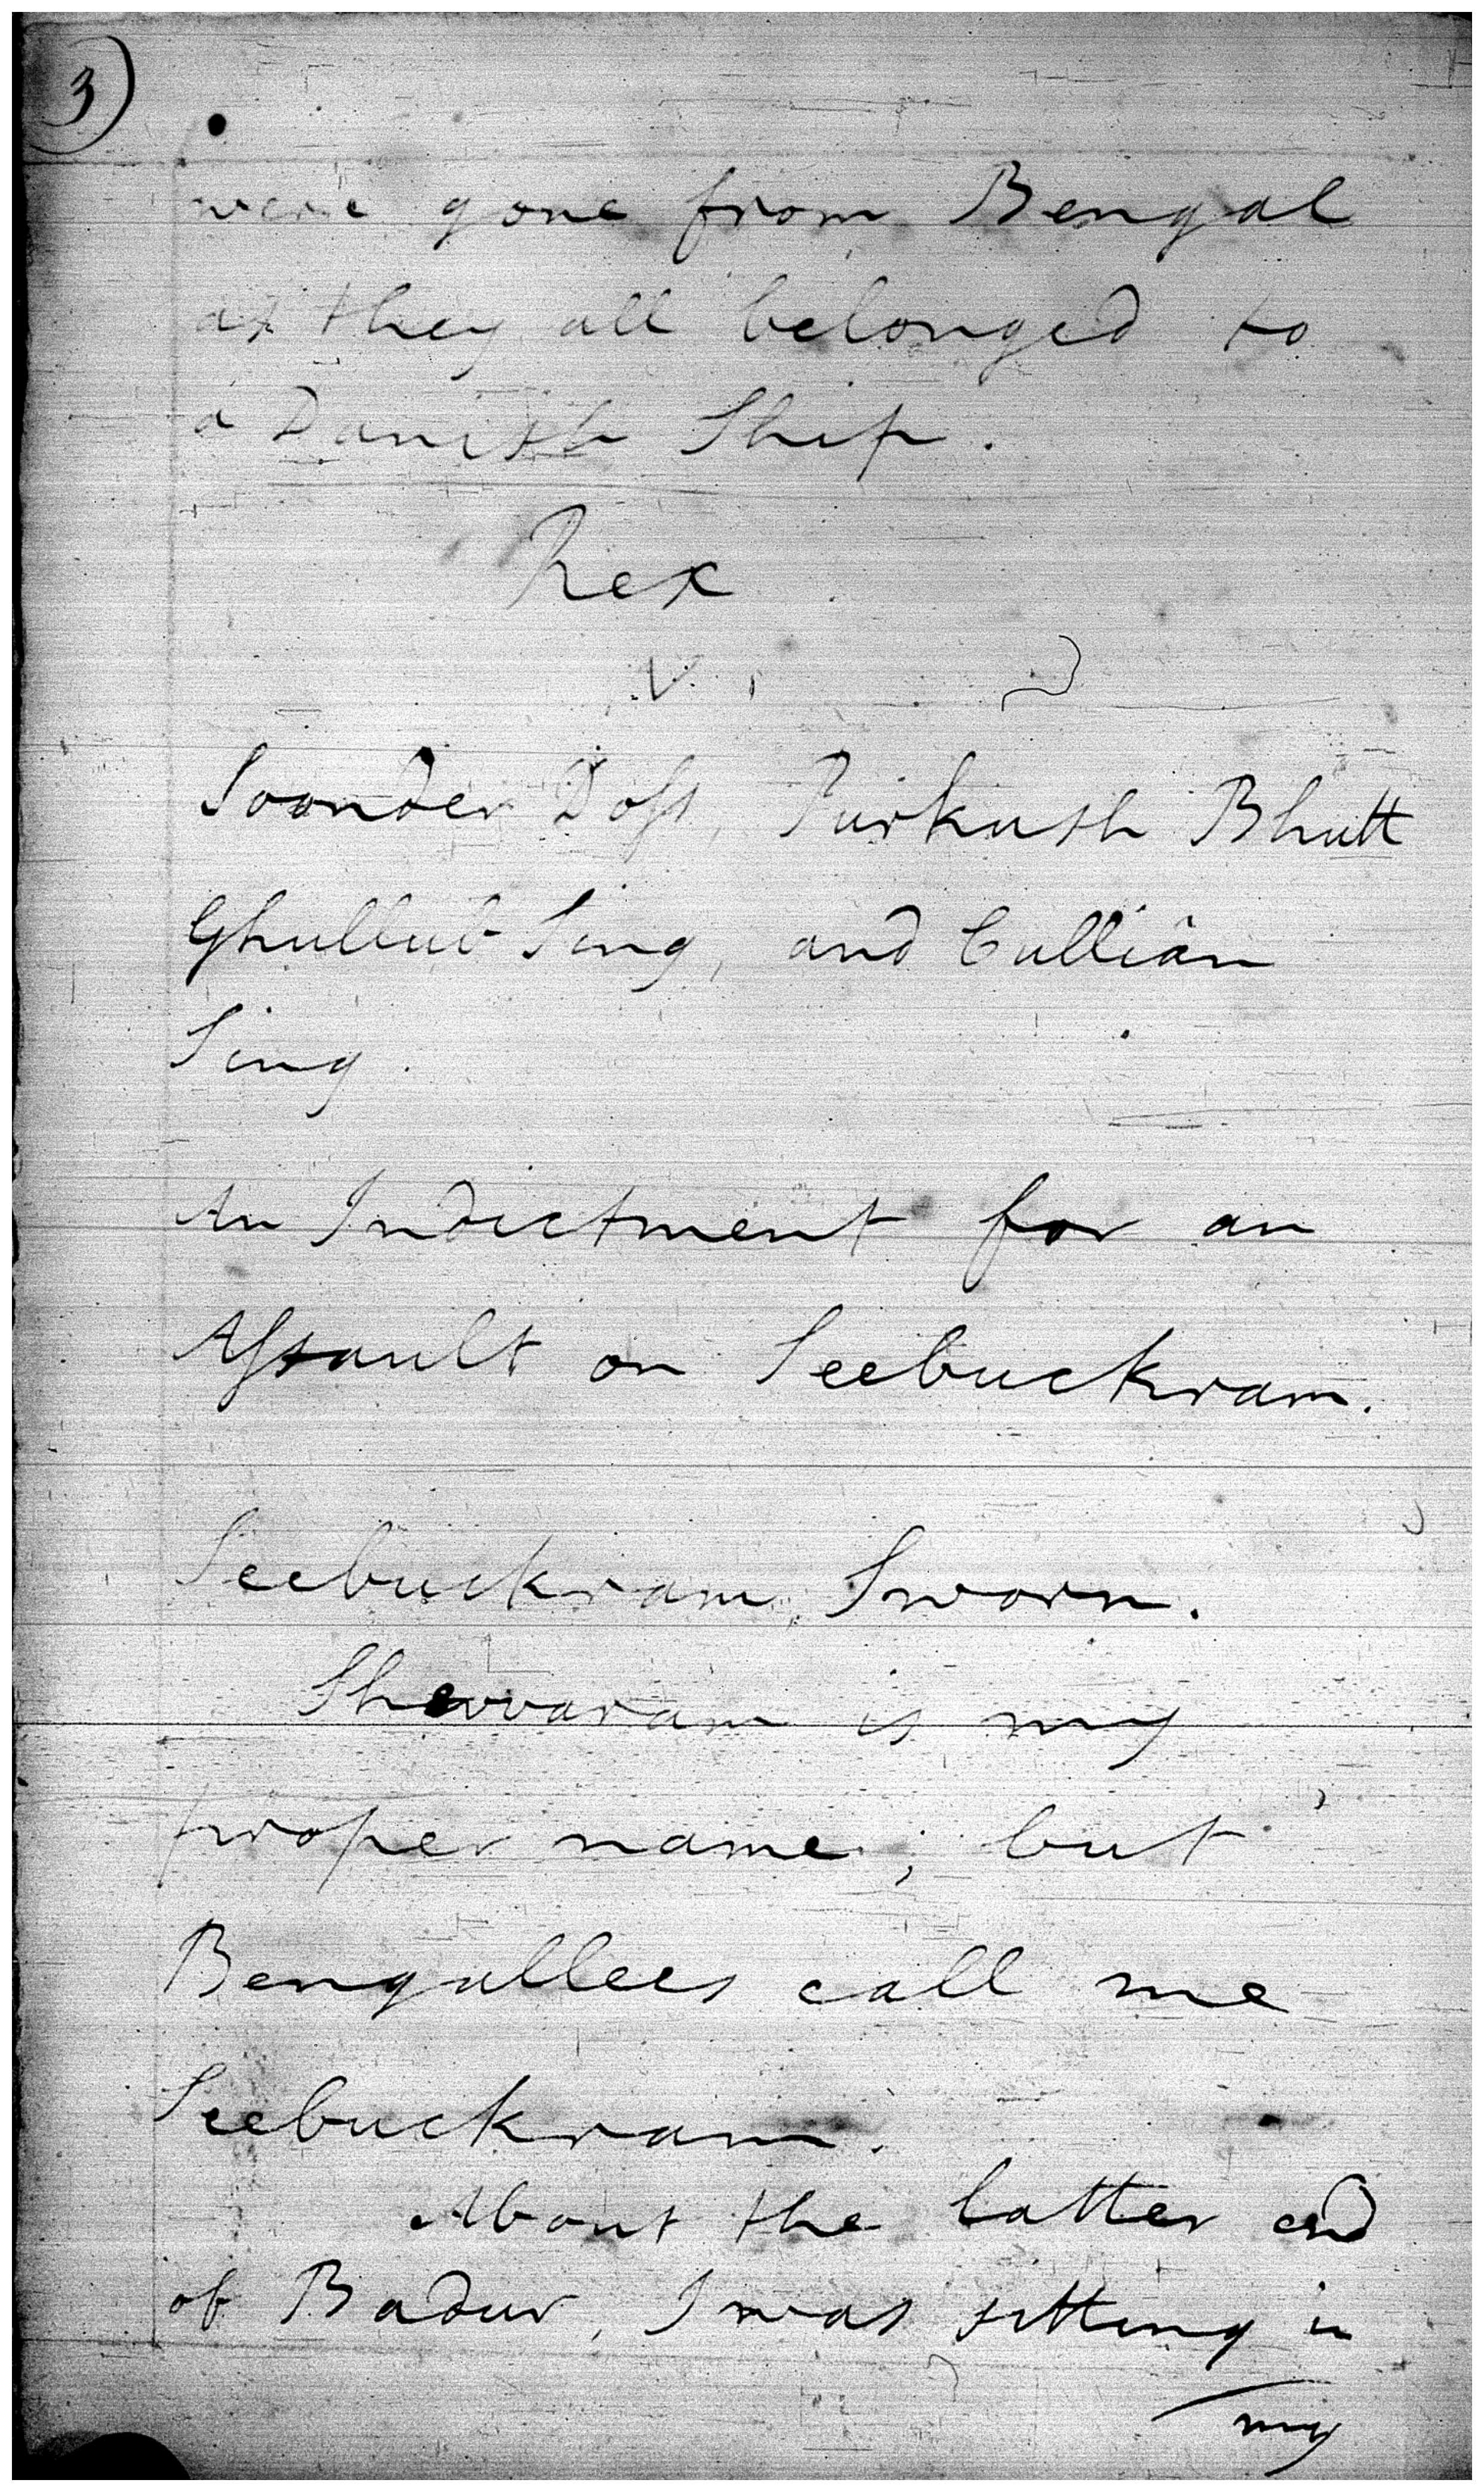 3)
were gone from Bengal
as they all belonged to
a Danish Ship.
Rex
v.
Soonder Doss, Purkush Bhutt
Ghullub Sing, and Cullian
Sing.
An Indictment for an
Assault on Seebuckram.
Seebuckram, Sworn.
Shewaram is my
proper name; but
Bengallees call me
Seebuckram.
About the latter end
of Badur, I was sitting in
my